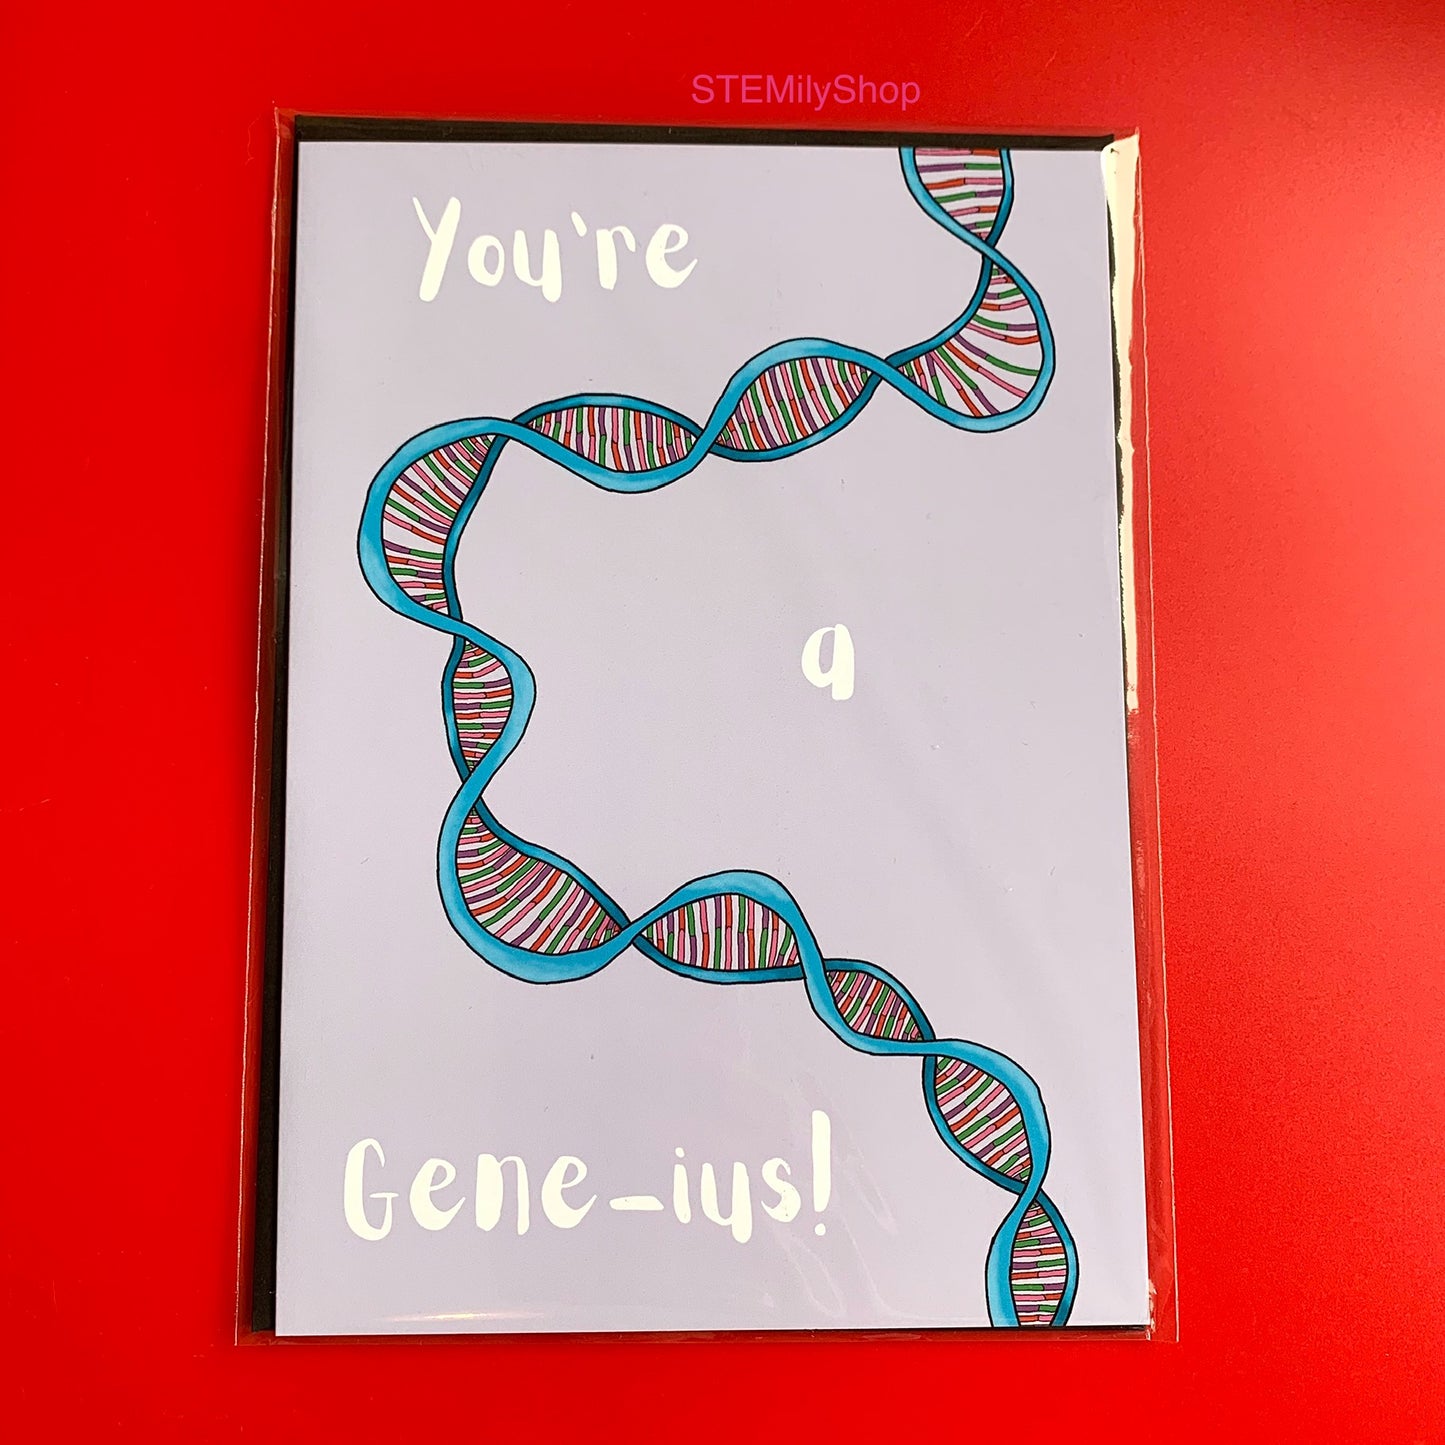 STEMilyShop
You're
a
Gene-ius!